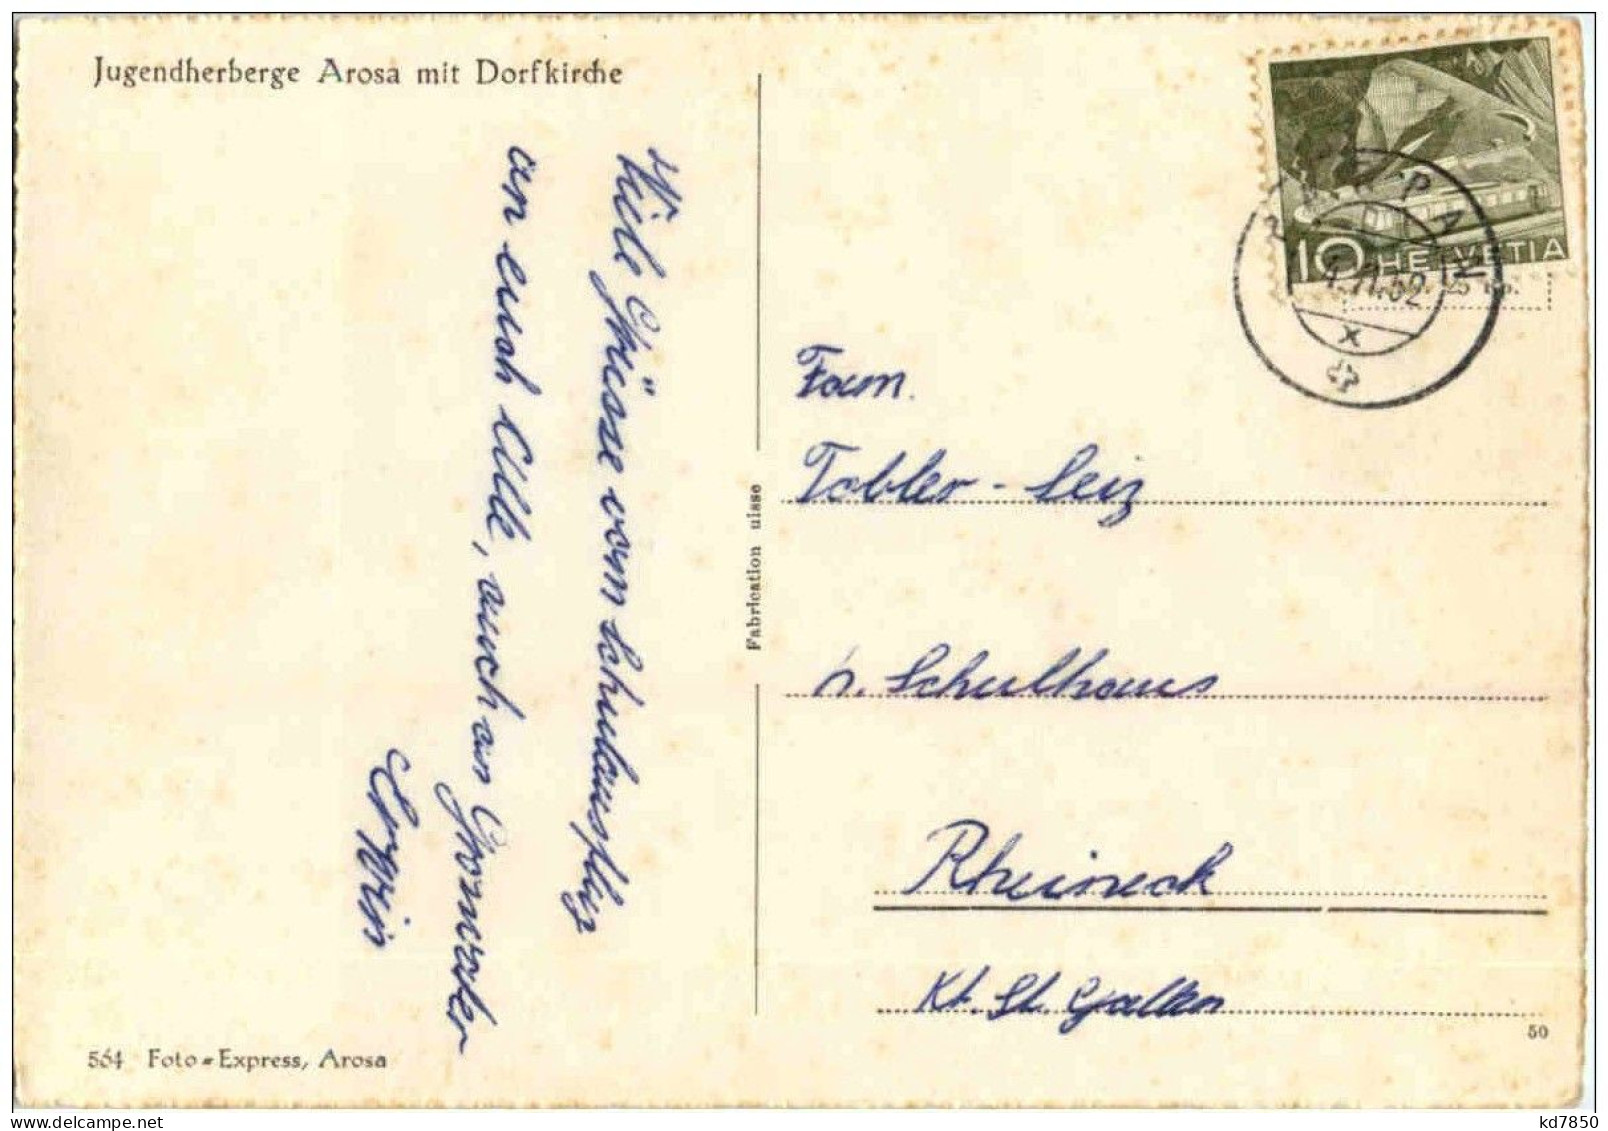 Jugendherberge Arosa mit Dorfkirche
Viele Grüsse vom Schulausflug
an euch Alle, auch an Grossvater
Erwin
Fabrication uisse
10 HELVETIA
11.52
Fam.
Tobler - Seiz
n. Schulhaus
Rheineck
Kt. St. Gallen
50
564 Foto-Express, Arosa
kd7850